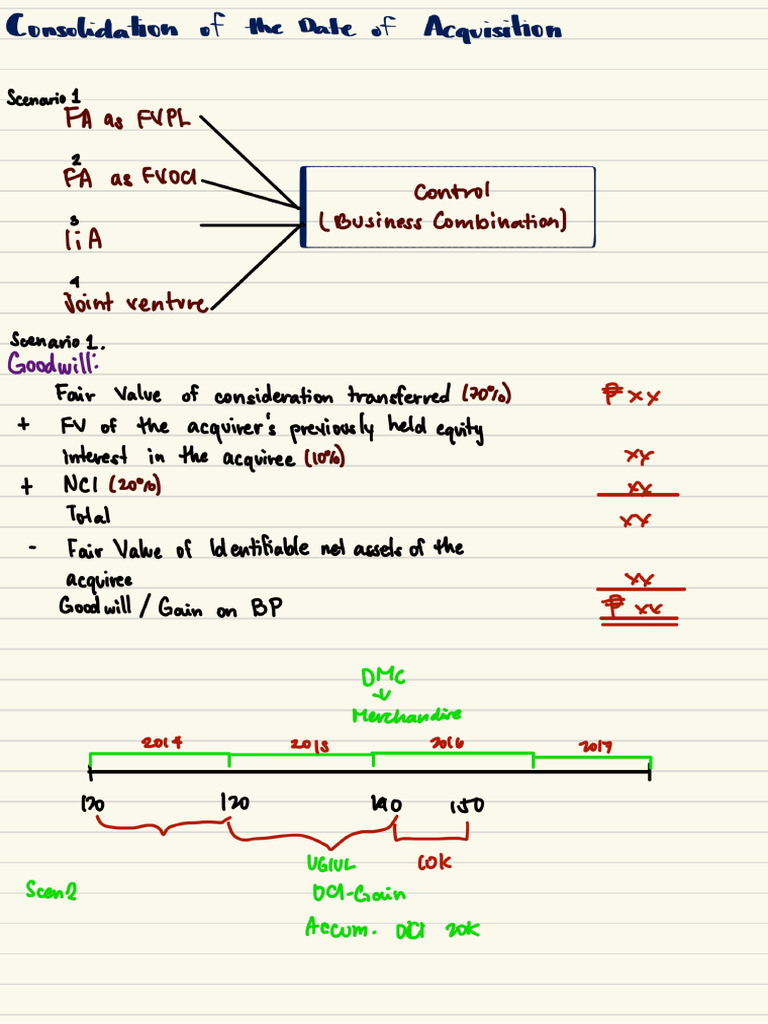 Consolidation of the Date of Acquisition
Scenario 1
FA as FVPL
2
FA as FVOCI
Control
(Business Combination)
3
IiA
4
Joint venture
Scenario 1.
Goodwill:
Fair Value of consideration transferred (70%) ₱ xx
+ FV of the acquirer's previously held equity
interest in the acquiree (10%) xx
+ NCI (20%) xx
Total xx
- Fair Value of Identifiable net assets of the
acquiree xx
Goodwill / Gain on BP ₱ xx
DMC
Merchandise
2014 2015 2016 2017
120 120 140 150
UG/UL 10K
Scen 2 OCI-Gain
Accum. OCI 20K